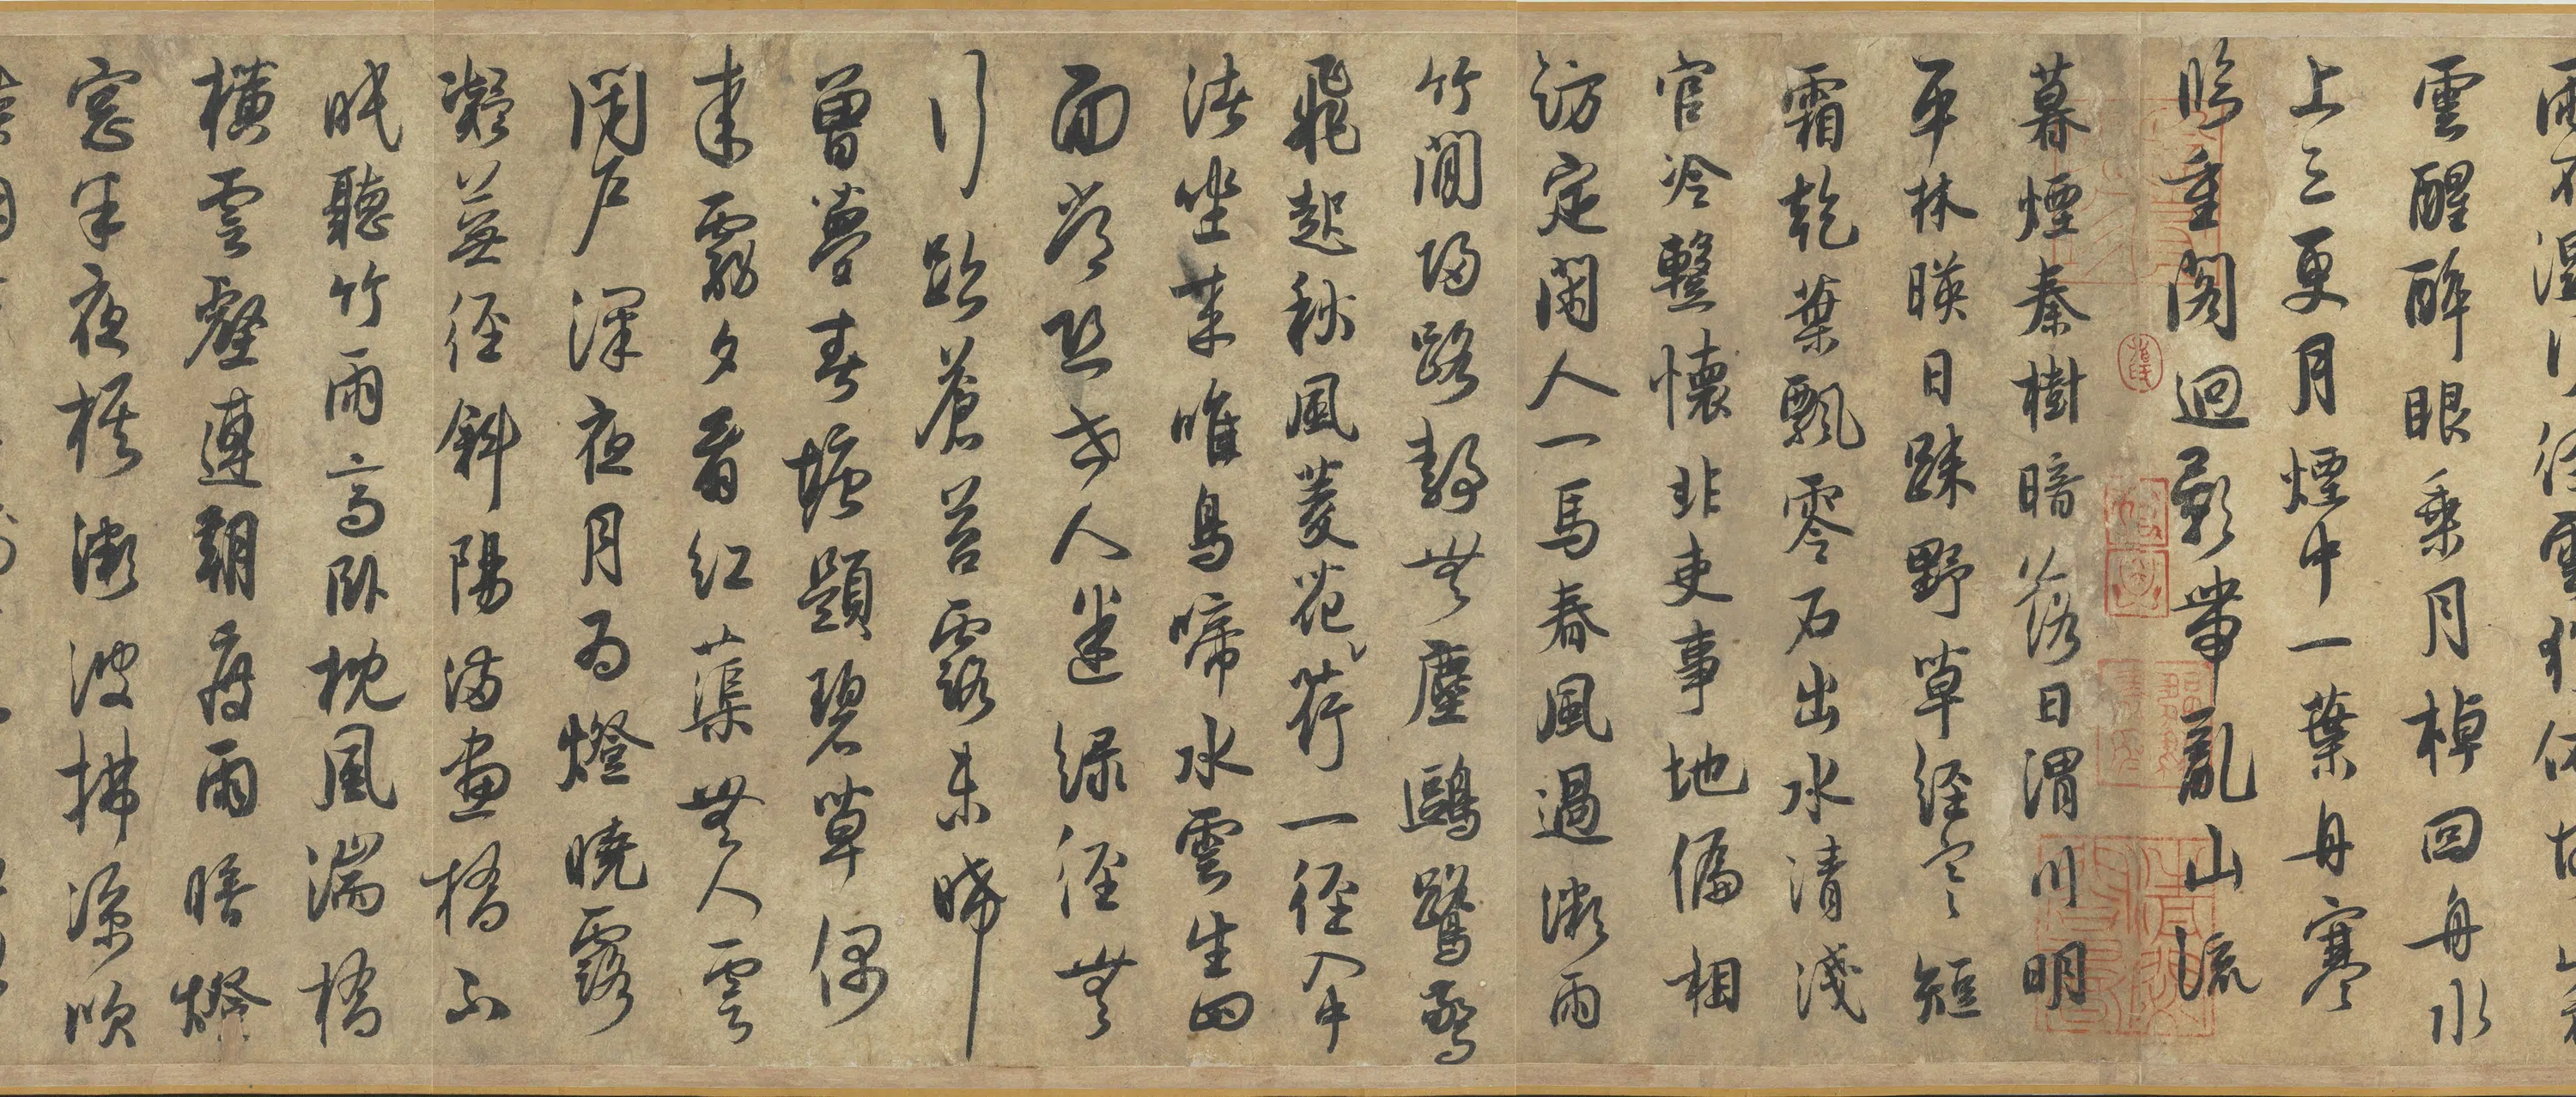 雲醒醉眼乘月棹回舟水
上三更月煙中一葉舟寒
吟重閣迴影帶亂山流
暮煙秦樹暗落日渭川明
平林暎日疎野草經寒短
霜乾葉飄零石出水清淺
官冷懷非吏事地偏相
訪定閑人一馬春風過微雨
竹間歸路静無塵鷗鷺驚
飛起秋風菱花荷一徑入中
渚坐來唯鳥啼水雲生四
面常恐世人迷綠徑無
行跡蒼苔露未晞
曽夢春塘題碧草偶
來夕看紅蕖無人雲
閉戶深夜月為燈曉露
凝蕪徑斜陽滿畫橋不
眠聽竹雨高卧枕風湍橋
橫雲壑連朝雨暗燈
窓半夜棋微波拂涼吹